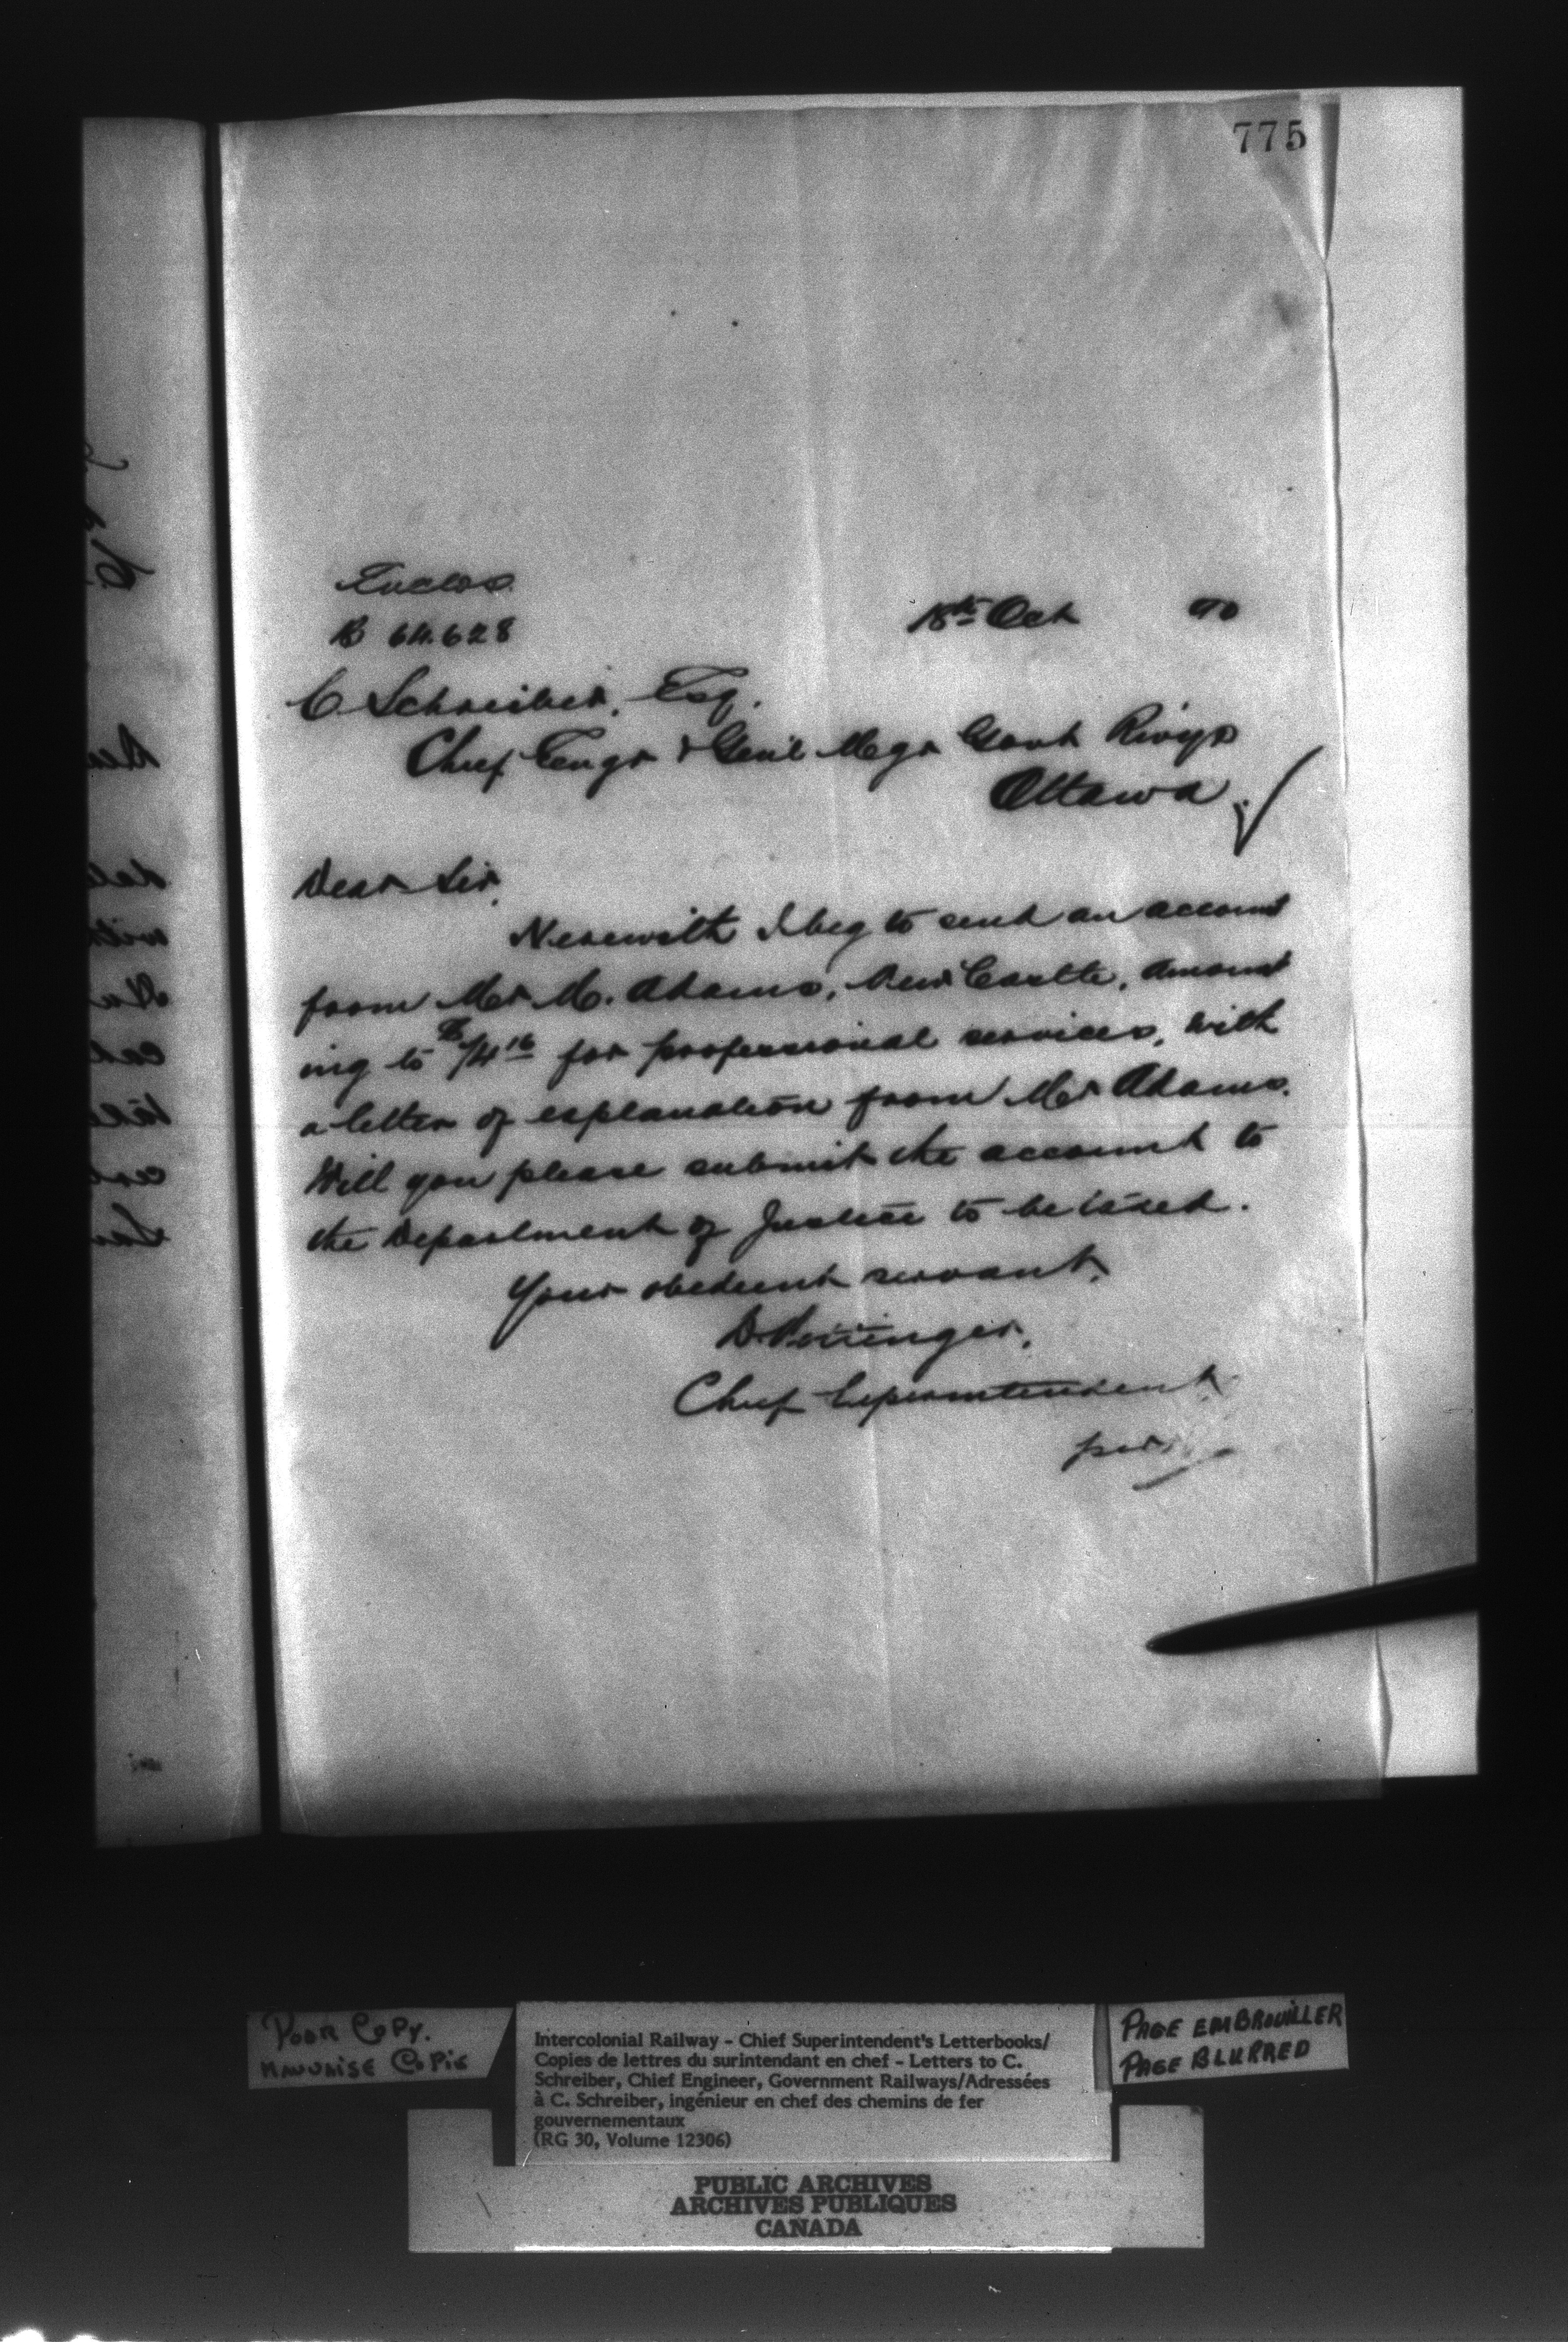 775
Enclos.
B 64.628
18th Oct 90
C. Schreiber, Esq.
Chief Engr & Genl Mgr Govt Rwys
Ottawa
Dear Sir,
Herewith I beg to send an account
from Mr M. Adams, New Castle, amount
ing to $14 16 for professional services, with
a letter of explanation from Mr Adams.
Will you please submit the account to
the Department of Justice to be taxed.
Your obedient servant,
D. Pottinger,
Chief Superintendent
per
POOR COPY.
MAUVAISE COPIE
Intercolonial Railway - Chief Superintendent's Letterbooks/
Copies de lettres du surintendant en chef - Letters to C.
Schreiber, Chief Engineer, Government Railways/Adressées
à C. Schreiber, ingénieur en chef des chemins de fer
gouvernementaux
(RG 30, Volume 12306)
PAGE EMBROUILLER
PAGE BLURRED
PUBLIC ARCHIVES
ARCHIVES PUBLIQUES
CANADA